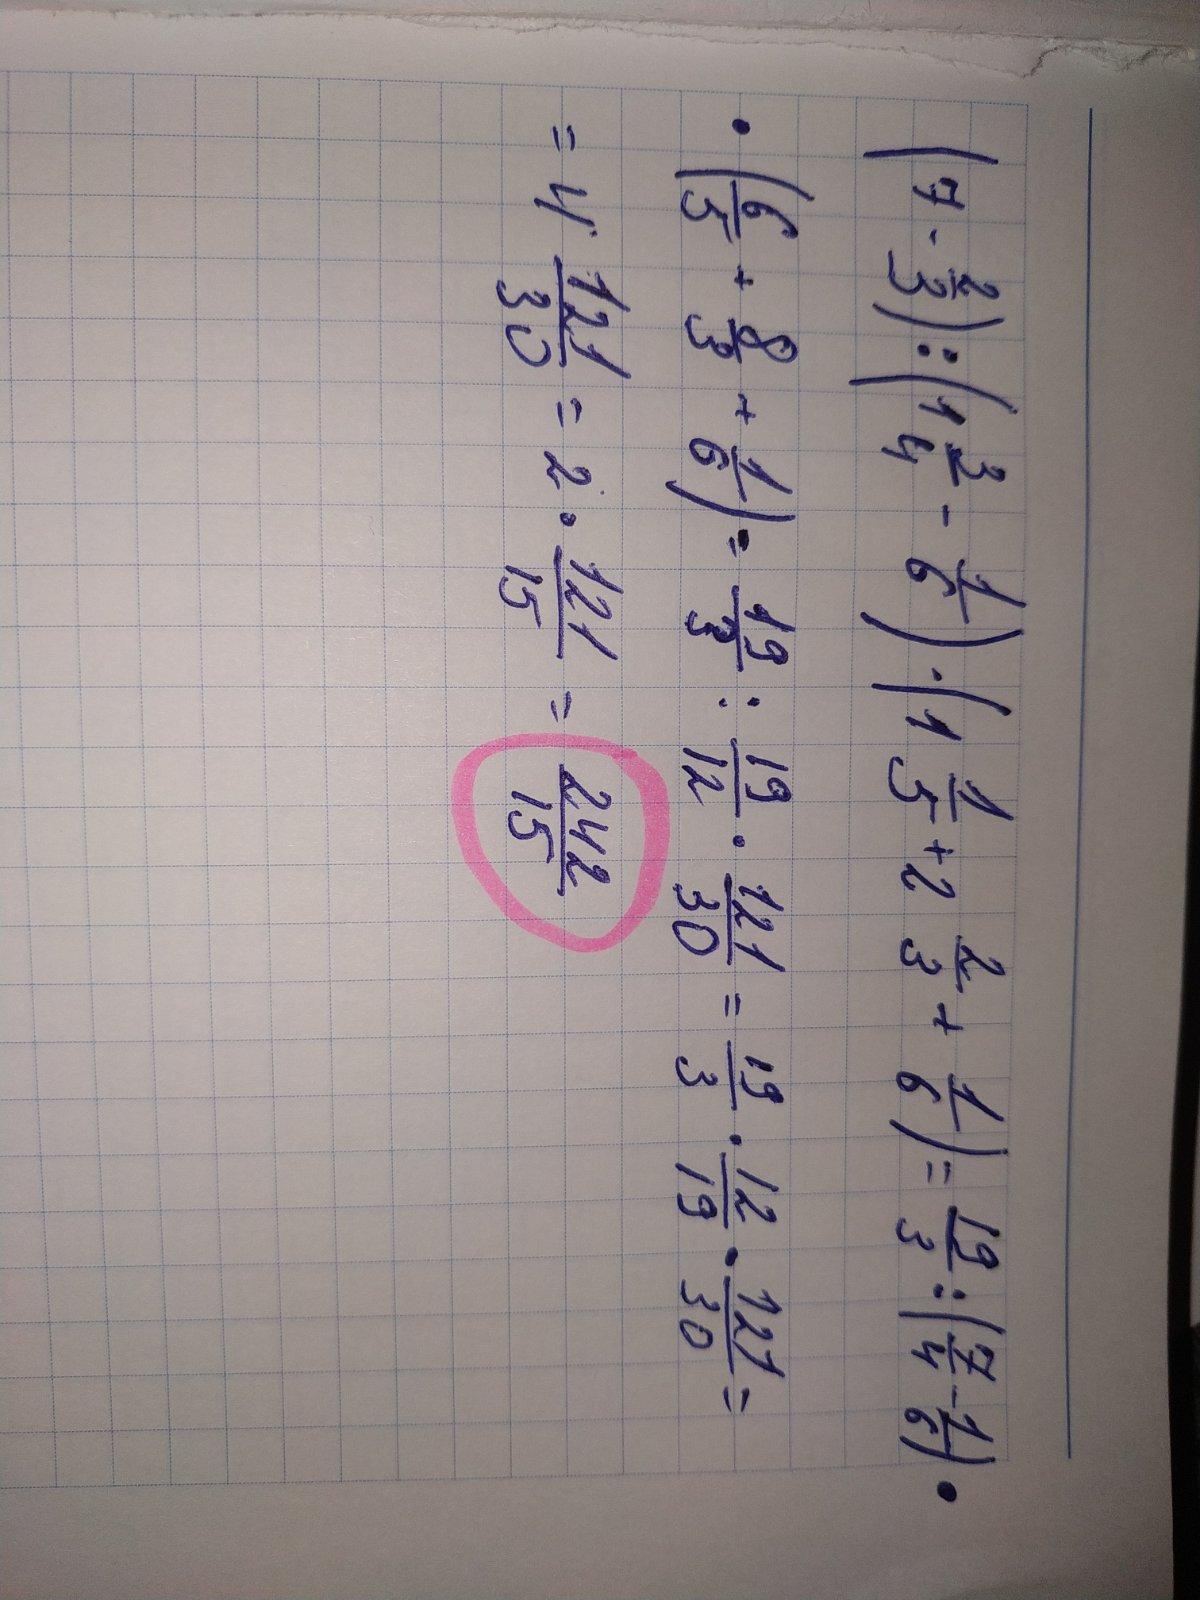 (7 - 2/3) : (1 3/4 - 1/6) · (1 1/5 + 2 2/3 + 1/6) = 19/3 : (7/4 - 1/6) ·
· (6/5 + 8/3 + 1/6) = 19/3 : 19/12 · 121/30 = 19/3 · 12/19 · 121/30 =
= 4 · 121/30 = 2 · 121/15 = 242/15